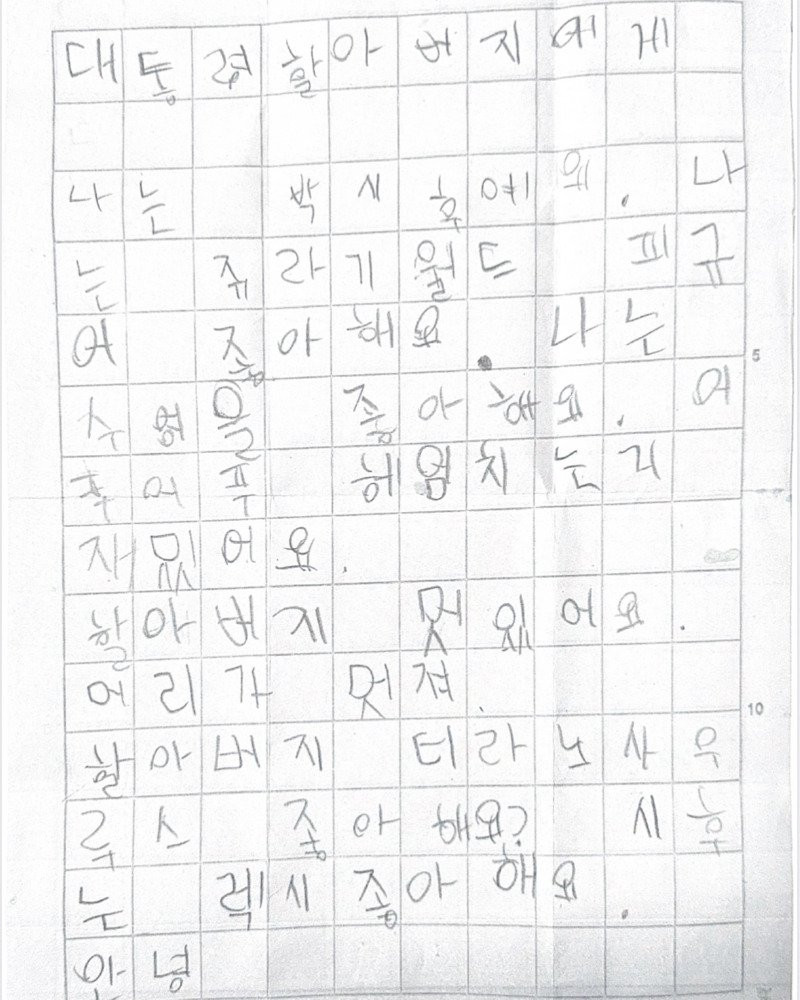 대통령할아버지에게
나는 박시후예요. 나
는 쥬라기월드 피규
어 좋아해요. 나는
수영을 좋아해요. 어
푸어푸 헤엄치는거
재밌어요.
할아버지 멋있어요.
머리가 멋져.
할아버지 티라노사우
루스 좋아해요? 시후
는 렉시좋아해요.
안녕
5
10